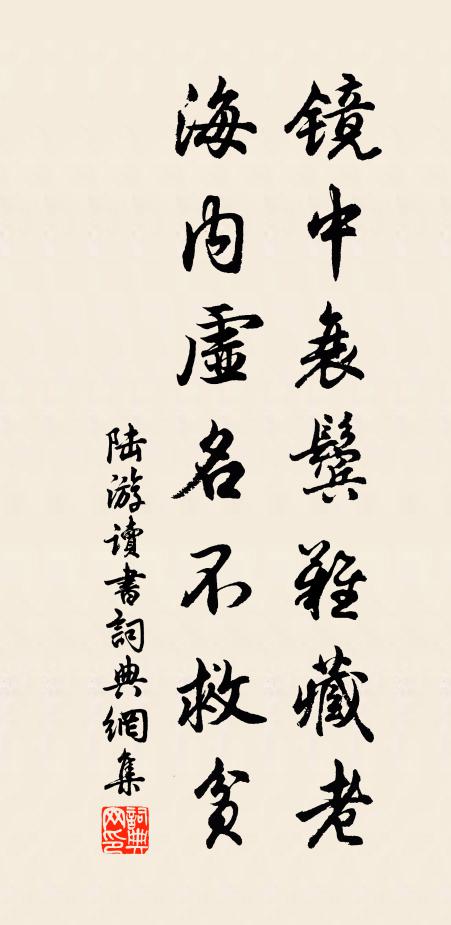 镜中衰鬓难藏老
海内虚名不救贫
陆游读書詞典網集
詞典
网印